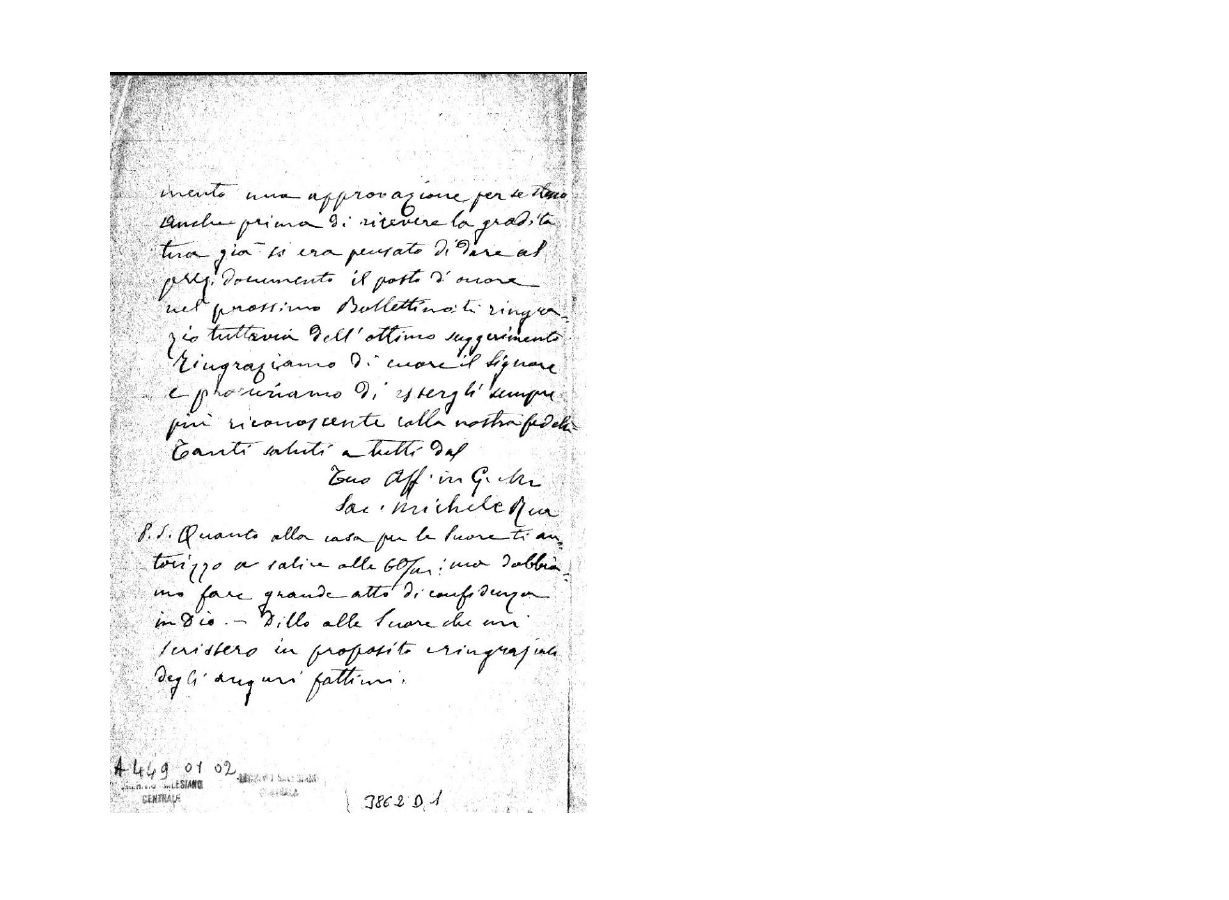 mento una approvazione per se stesso
Anche prima di ricevere la gradita
tua già si era pensato di dare al
preg. documento il posto d'onore
nel prossimo Bollettino: ti ringra-
zio tuttavia dell'ottimo suggerimento
Ringraziamo di cuore il Signore
e procuriamo di essergli sempre
più riconoscente colla nostra fedeltà
Tanti saluti a tutti dal
Tuo Aff. in G. e M.
Sac. Michele Rua
P.S. Quanto alla casa per le Suore ti au-
torizzo a salire alle 60/m: ma dobbia-
mo fare grande atto di confidenza
in Dio. — Dillo alle Suore che mi
scrissero in proposito e ringraziale
degli auguri fattimi.
A 449 01 02
SALESIANO
CENTRALE
3862 D 1